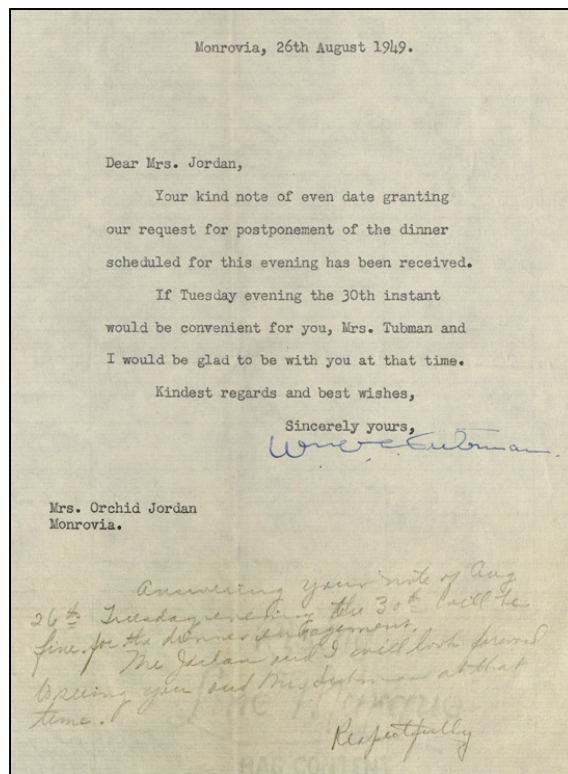 Monrovia, 26th August 1949.
Dear Mrs. Jordan,
Your kind note of even date granting
our request for postponement of the dinner
scheduled for this evening has been received.
If Tuesday evening the 30th instant
would be convenient for you, Mrs. Tubman and
I would be glad to be with you at that time.
Kindest regards and best wishes,
Sincerely yours,
Tubman.
Mrs. Orchid Jordan
Monrovia.
Answering your note of Aug
26th Tuesday evening the 30th will be
fine for the dinner engagement.
Mr Jordan and I will look forward
to seeing you and Mrs Tubman at that
time.
Respectfully